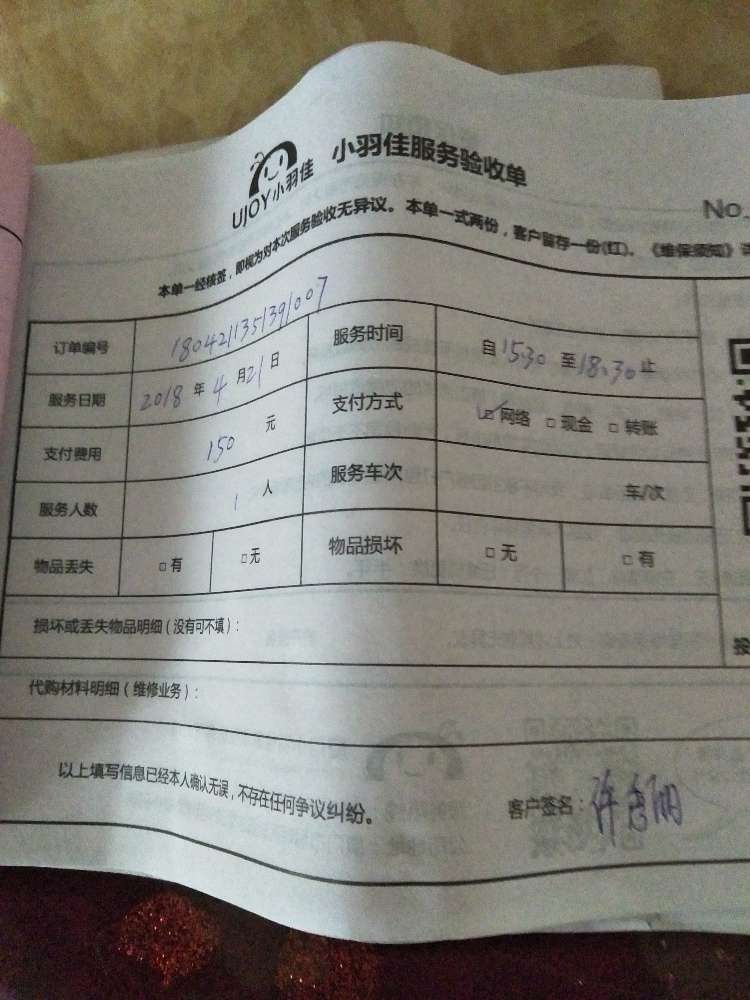 UJOY小羽佳 小羽佳服务验收单
No.
本单一经核签，即视为对本次服务验收无异议。本单一式两份，客户留存一份(红)。《维保须知》详
订单编号 1804211351391007 服务时间 自15:30至18:30止
服务日期 2018年4月21日 支付方式 ☑网络 □现金 □转账
支付费用 150元 服务车次 车/次
服务人数 1人
物品丢失 □有 □无 物品损坏 □无 □有
损坏或丢失物品明细（没有可不填）：
按
代购材料明细（维修业务）：
以上填写信息已经本人确认无误，不存在任何争议纠纷。
客户签名：许